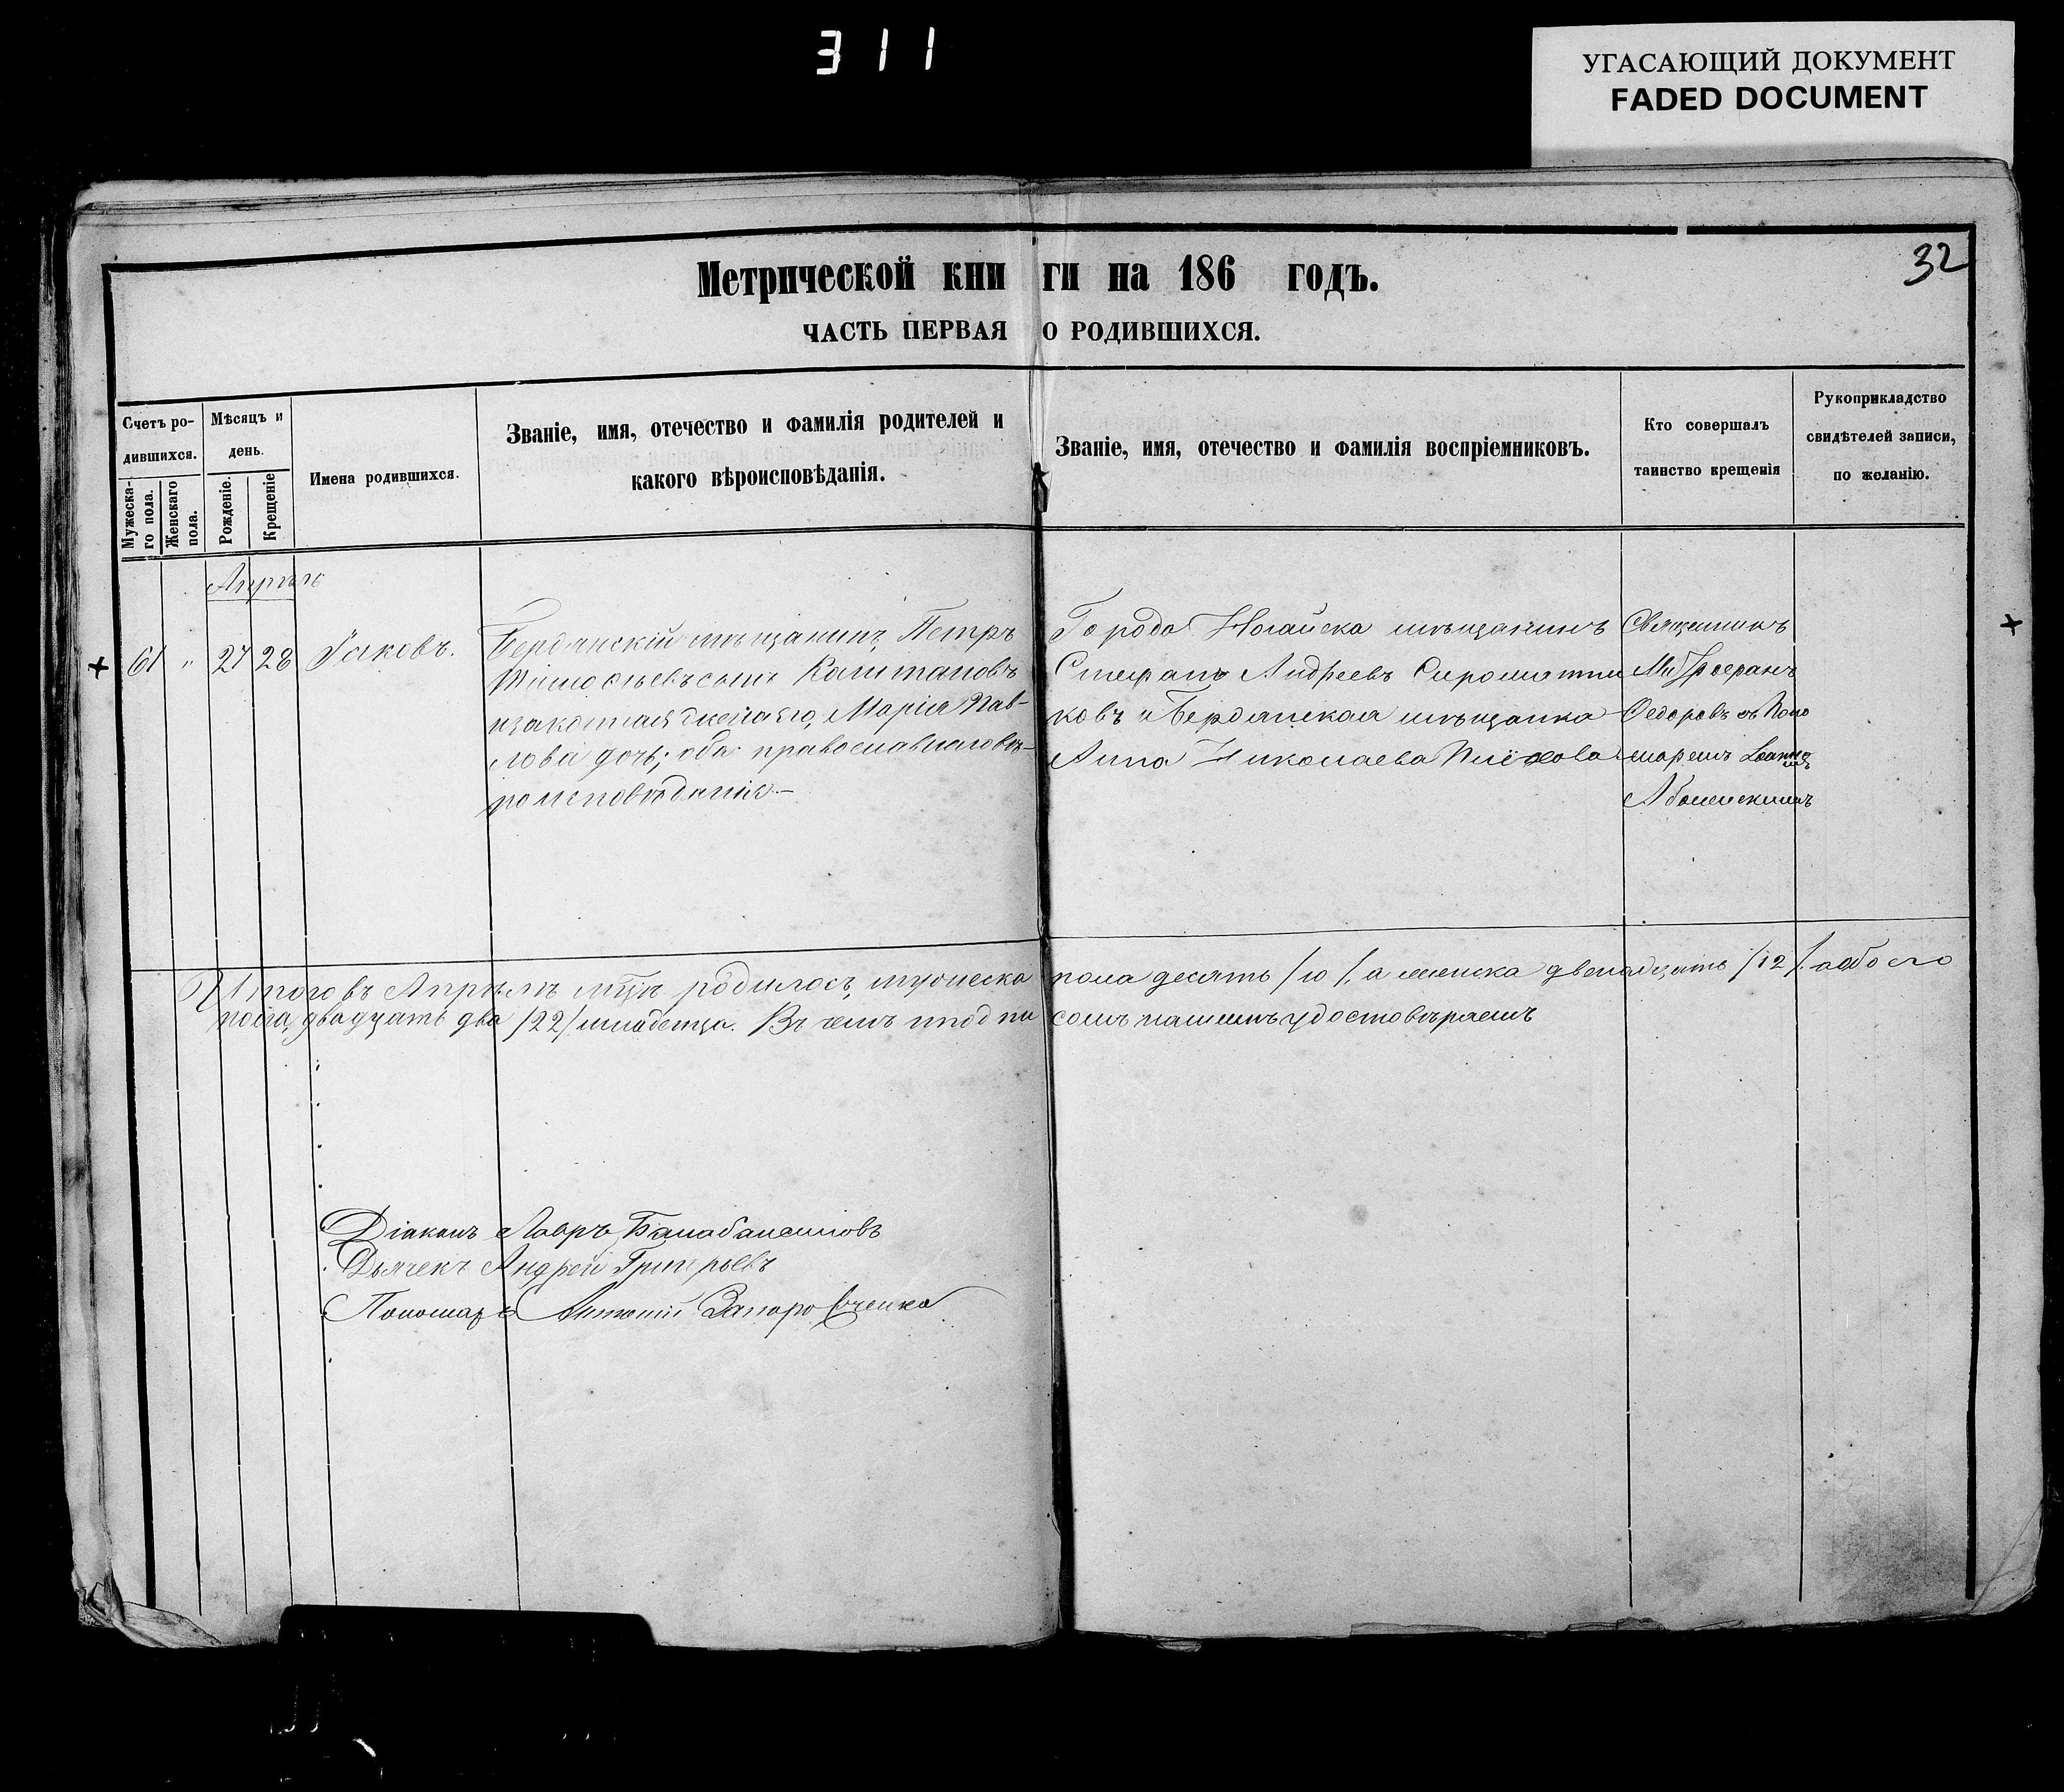 311
УГАСАЮЩИЙ ДОКУМЕНТ
FADED DOCUMENT
32
Метрической книги на 186 годъ.
ЧАСТЬ ПЕРВАЯ О РОДИВШИХСЯ.
Счетъ ро-
дившихся.
Мужеска-
го пола.
Женскаго
пола.
Мѣсяцъ и
день.
Рожденіе.
Крещеніе
Имена родившихся.
Званіе, имя, отечество и фамилія родителей и
какого вѣроисповѣданія.
Званіе, имя, отечество и фамилія воспріемниковъ.
Кто совершалъ
таинство крещенія
Рукоприкладство
свидѣтелей записи,
по желанію.
Апрѣль
61 " 27 28 Іаковъ.
Бердянскій мѣщанинъ Петръ
сынъ Каштановъ
изаконная жена его, Марія Пав-
лова дочь; оба православнаго вѣ-
роисповѣданія.-
Города Ногайска мѣщанинъ
Стефанъ Андреевъ Сиромятни
ковъ и Бердянская мѣщанка
Анна Николаева
Священникъ
Федоровъ съ Поно
маремъ
Итого въ Апрѣлѣ мцѣ родилось, мужеска пола десять /10/, а женска двенадцать /12/. а обоего
пола, двадцать два /22/ младенца. Въ чемъ и подписомъ нашимъ удостовѣряемъ
Діаконъ Лавръ
Дьячекъ Андрей Григорьевъ
Пономарь Антоній